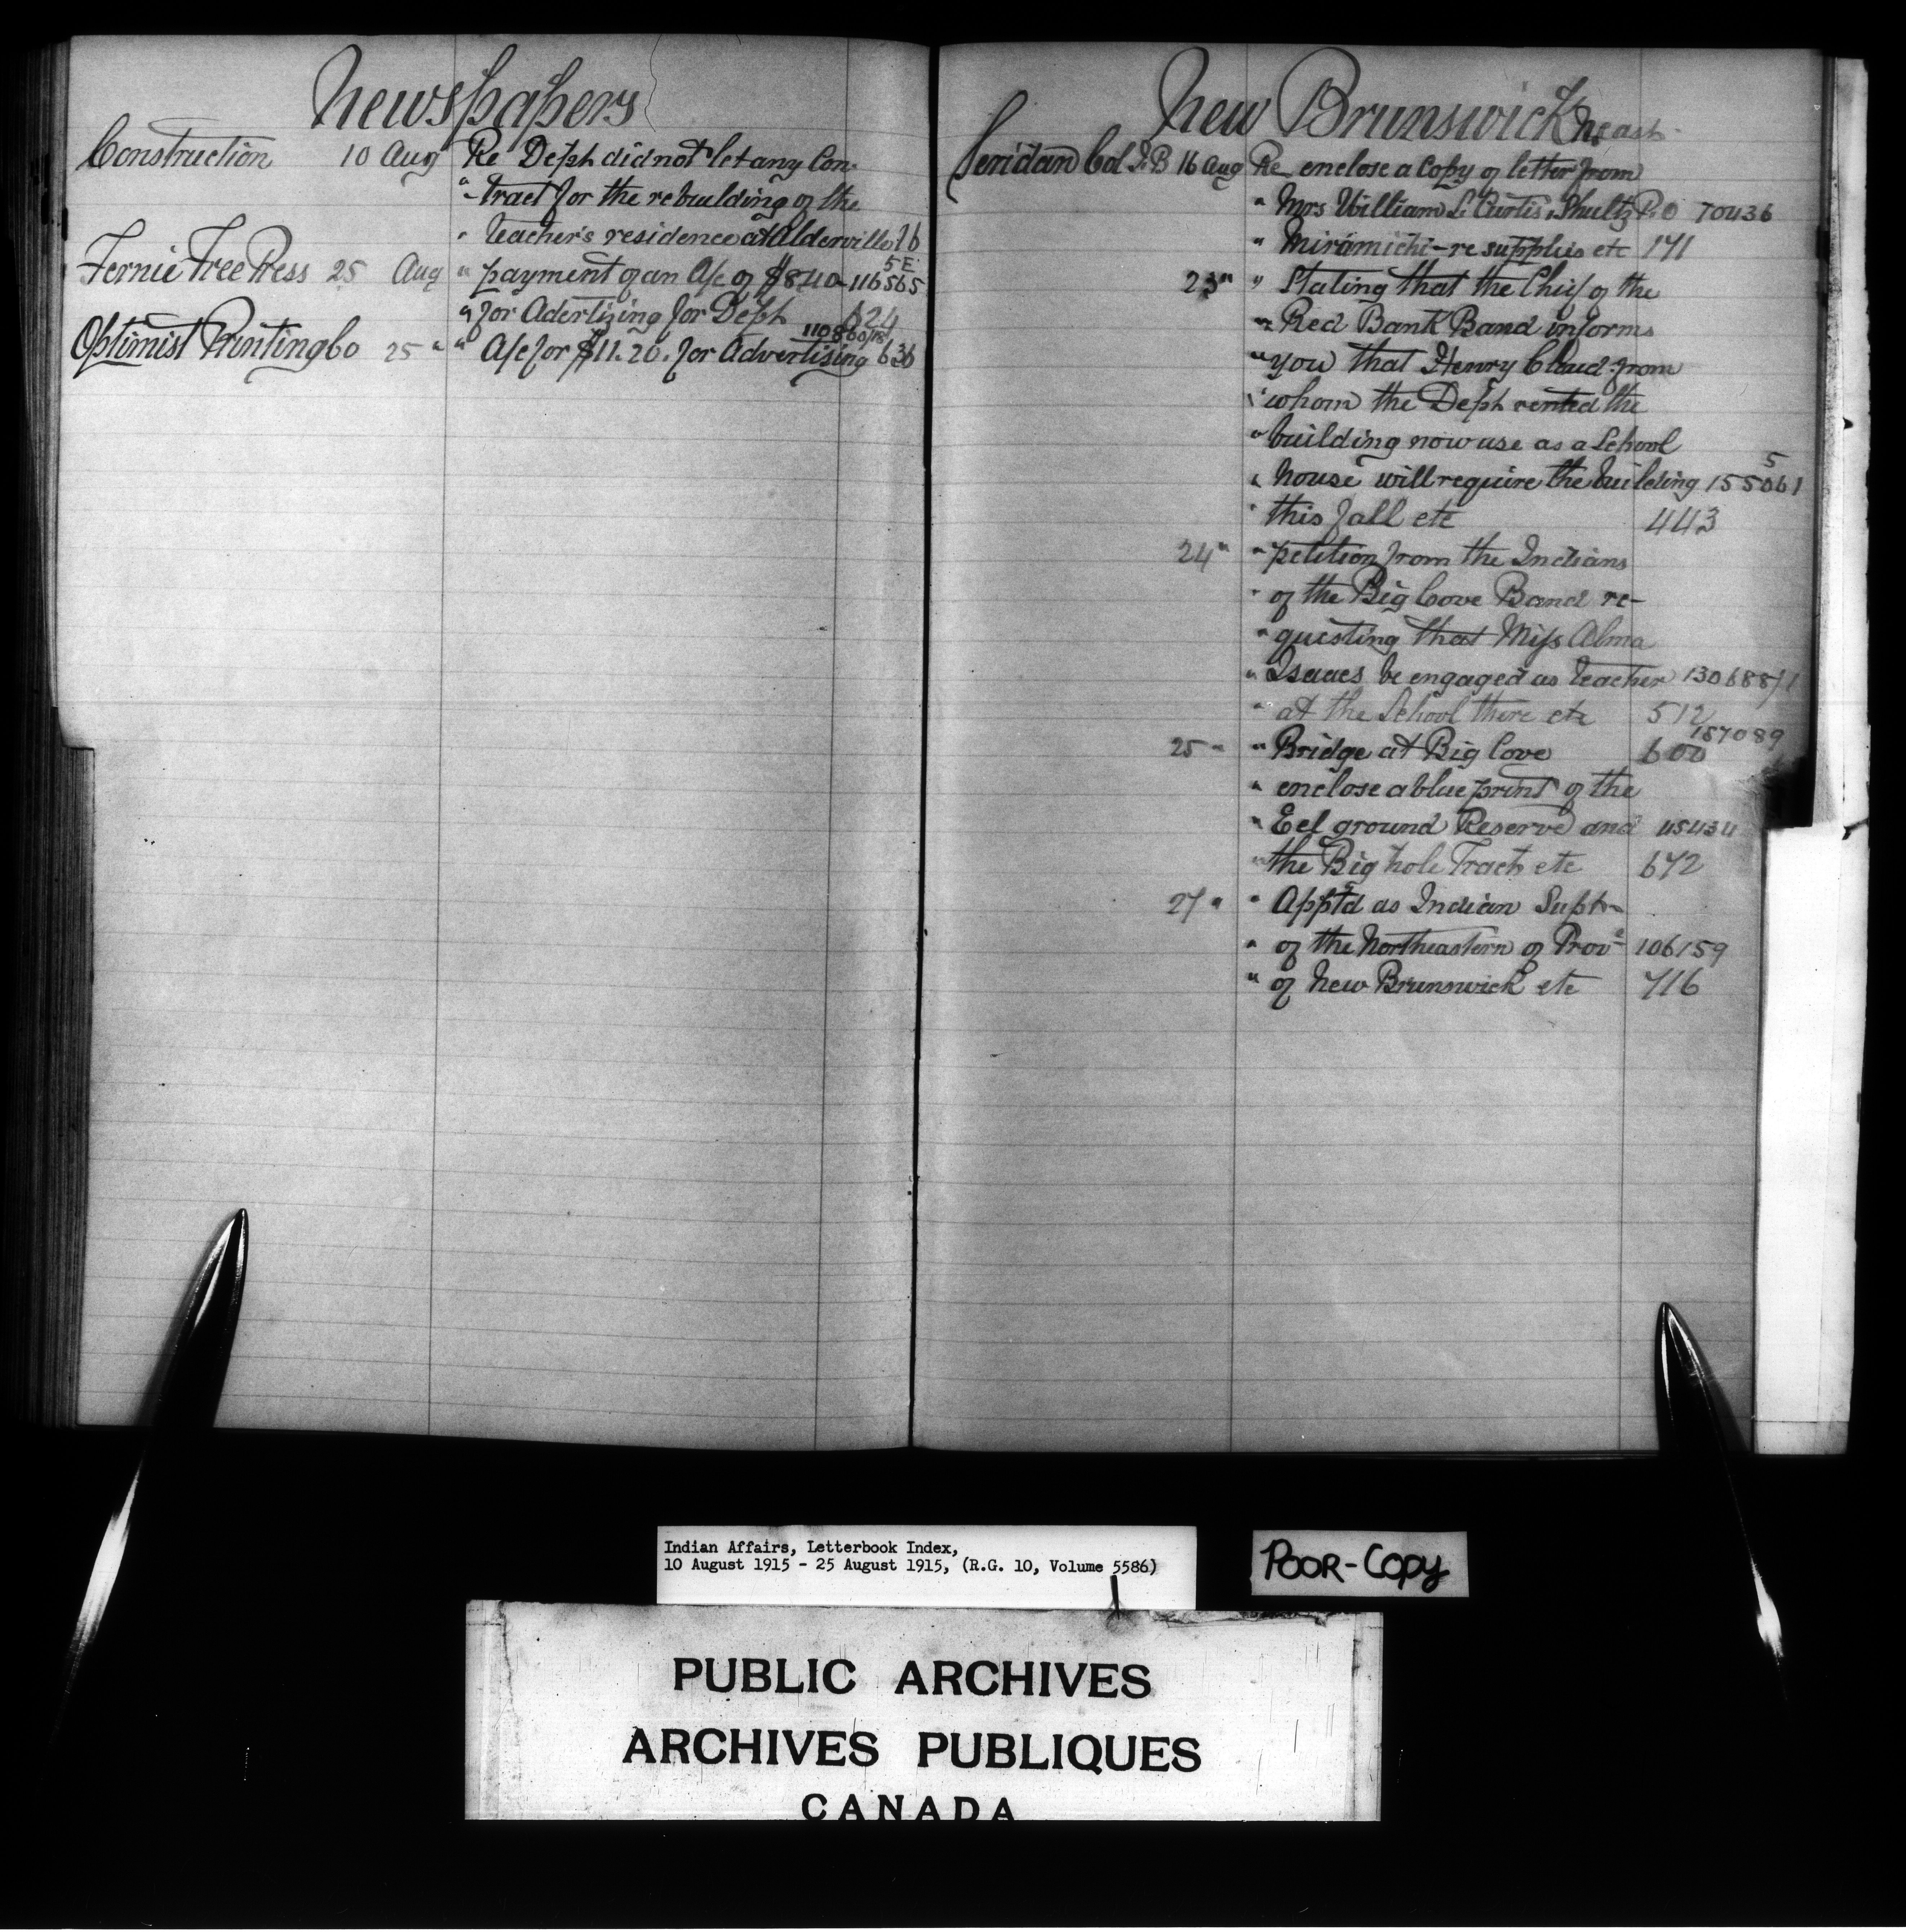 Newspapers
Construction 10 Aug Re Dept did not let any Con-
" tract for the rebuilding of the
" teacher's residence at Alderville 16
Fernie Free Press 25 Aug " payment of an A/c of $8.40 - 116565 5E
" for Adertizing for Dept 624
Optimist Printing Co 25 " " A/c for $11.20. for Advertising 636
New Brunswick N. east.
Sheridan Col J.B 16 Aug Re enclose a Copy of letter from
" Mrs William S. Curtis, Shultz P.O 70436
" Miramichi - re supplies etc 141
23 " " Stating that the Chief of the
" Red Bank Band informs
" you that Henry Cloud from
" whom the Dept rented the
" building now use as a School
" house will require the building 155061 5
" this fall etc 443
24 " " petition from the Indians
" of the Big Cove Band re-
" questing that Miss Alma
" Isaacs be engaged as teacher 130688/1
" at the School there etc 512
25 " " Bridge at Big Cove 157089 600
" enclose a blue print of the
" Eel ground Reserve and 115434
" the Big hole Tract etc 672
27 " " Apptd as Indian Supt
" of the Northeastern of Prov 106159
" of New Brunswick etc 716
Indian Affairs, Letterbook Index,
10 August 1915 - 25 August 1915, (R.G. 10, Volume 5586)
POOR-COPY
PUBLIC ARCHIVES
ARCHIVES PUBLIQUES
CANADA